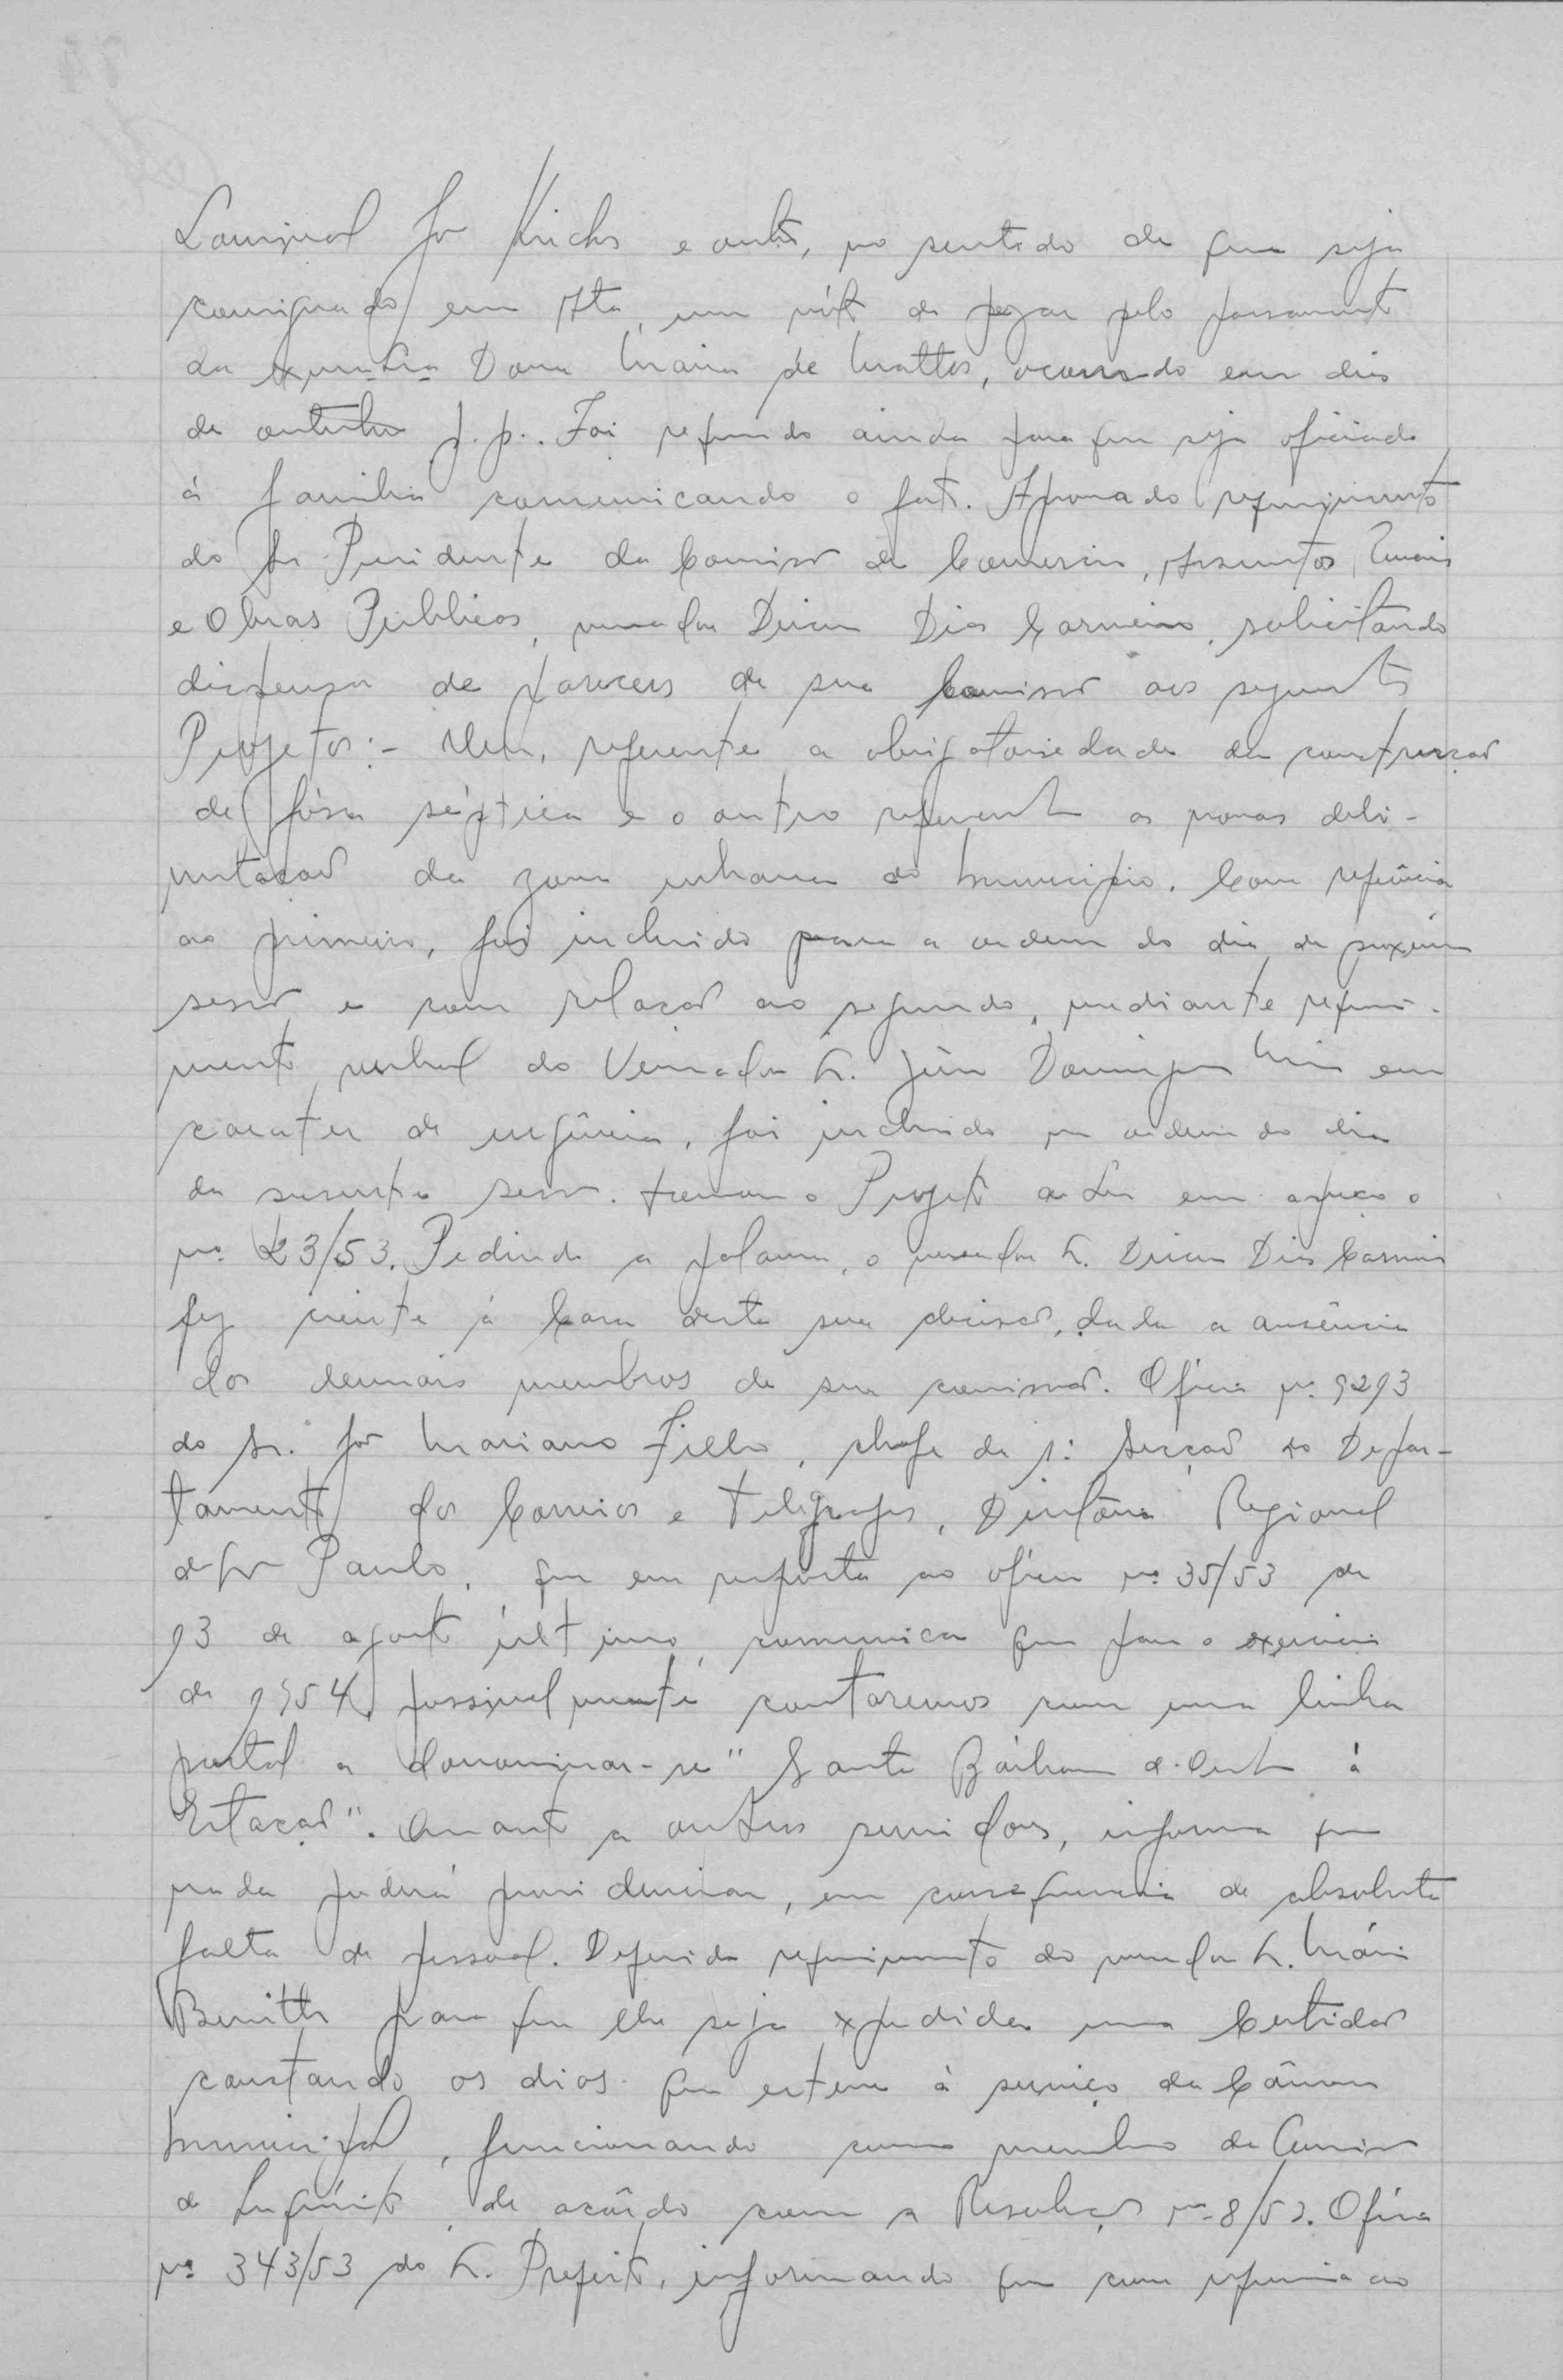 e outro, no sentido de que seja
consignado em Ata, um vóto de pezar pelo passamento
da exma. sra. Dona Maria de Mattos, ocorrido em dias
de outubro p.p.. Foi requerido ainda para que seja oficiado
á familia comunicando o fato. Aprovado requerimento
do Sr. Presidente da Comissão de Comercio, Assuntos Rurais
e Obras Públicas, vereador Dirceu Dias Carneiro, solicitando
dispensa de pareceres de sua Comissão aos seguintes
Projetos:- Um, referente a obrigatoriedade da construção
de fóssa séptica e o outro referente as novas deli-
mitação da zona urbana do Municipio. Com referência
ao primeiro, foi incluido para a ordem do dia da proxima
sessão e com relação ao segundo, mediante requeri-
mento verbal do Vereador Sr. Domingues em
carater de urgência, foi incluido na ordem do dia
da presente sessão. tomou o Projeto de Lei em apreço o
nº 23/53. Pedindo a palavra, o vereador Sr. Dirceu Dias Carneiro
fez ciente á Casa desta sua decisão, dada a ausência
dos demais membros de sua comissão. Oficio nº 9293
do Sr. José Mariano Filho, chefe da 1ª Secção do Depar-
tamento dos Correios e Telégrafos, Diretoria Regional
de São Paulo, que em resposta ao oficio nº 35/53 de
13 de agosto último, comunica que para o exercicio
de 1954, possivelmente contaremos com uma linha
postal a denominar-se "Santa Bárbara d'Oeste á
Estação". Quanto a outros servidores, informa que
nada poderá providenciar, em consequencia de absoluta
falta de pessoal. Deferido requerimento do vereador Sr. Mário
para que lhe seja expedida uma Certidão
constando os dias que esteve á serviço da Câmara
Municipal, funcionando como membro da Comissão
de Inquérito, de acôrdo com a Resolução nº 8/52. Oficio
nº 343/53 do Sr. Prefeito, informando que com referencia ao